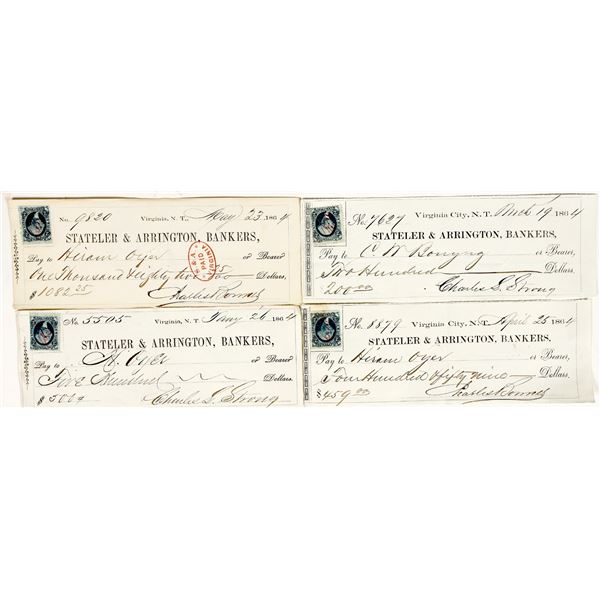 No. 9820 Virginia, N.T. May 23 1864
STATELER & ARRINGTON, BANKERS,
Pay to Hiram Oyer or Bearer
One Thousand Eighty two 25 Dollars.
$1082 25 Charles Bonner
S & A
PAID
VIRGINIA
No. 7627 Virginia City, N.T. Mch 19 1864
STATELER & ARRINGTON, BANKERS,
Pay to C. W. Bonyng or Bearer,
Two Hundred Dollars.
200.00 Charles L. Strong
No. 5505 Virginia, N.T. Jany 26 1864
STATELER & ARRINGTON, BANKERS,
Pay to H. Oyer or Bearer
Five Hundred Dollars.
$500 Charles L. Strong
No. 8879 Virginia City, N.T. April 25 1864
STATELER & ARRINGTON, BANKERS,
Pay to Hiram Oyer or Bearer,
Four Hundred fifty nine Dollars.
$459.00 Charles Bonner